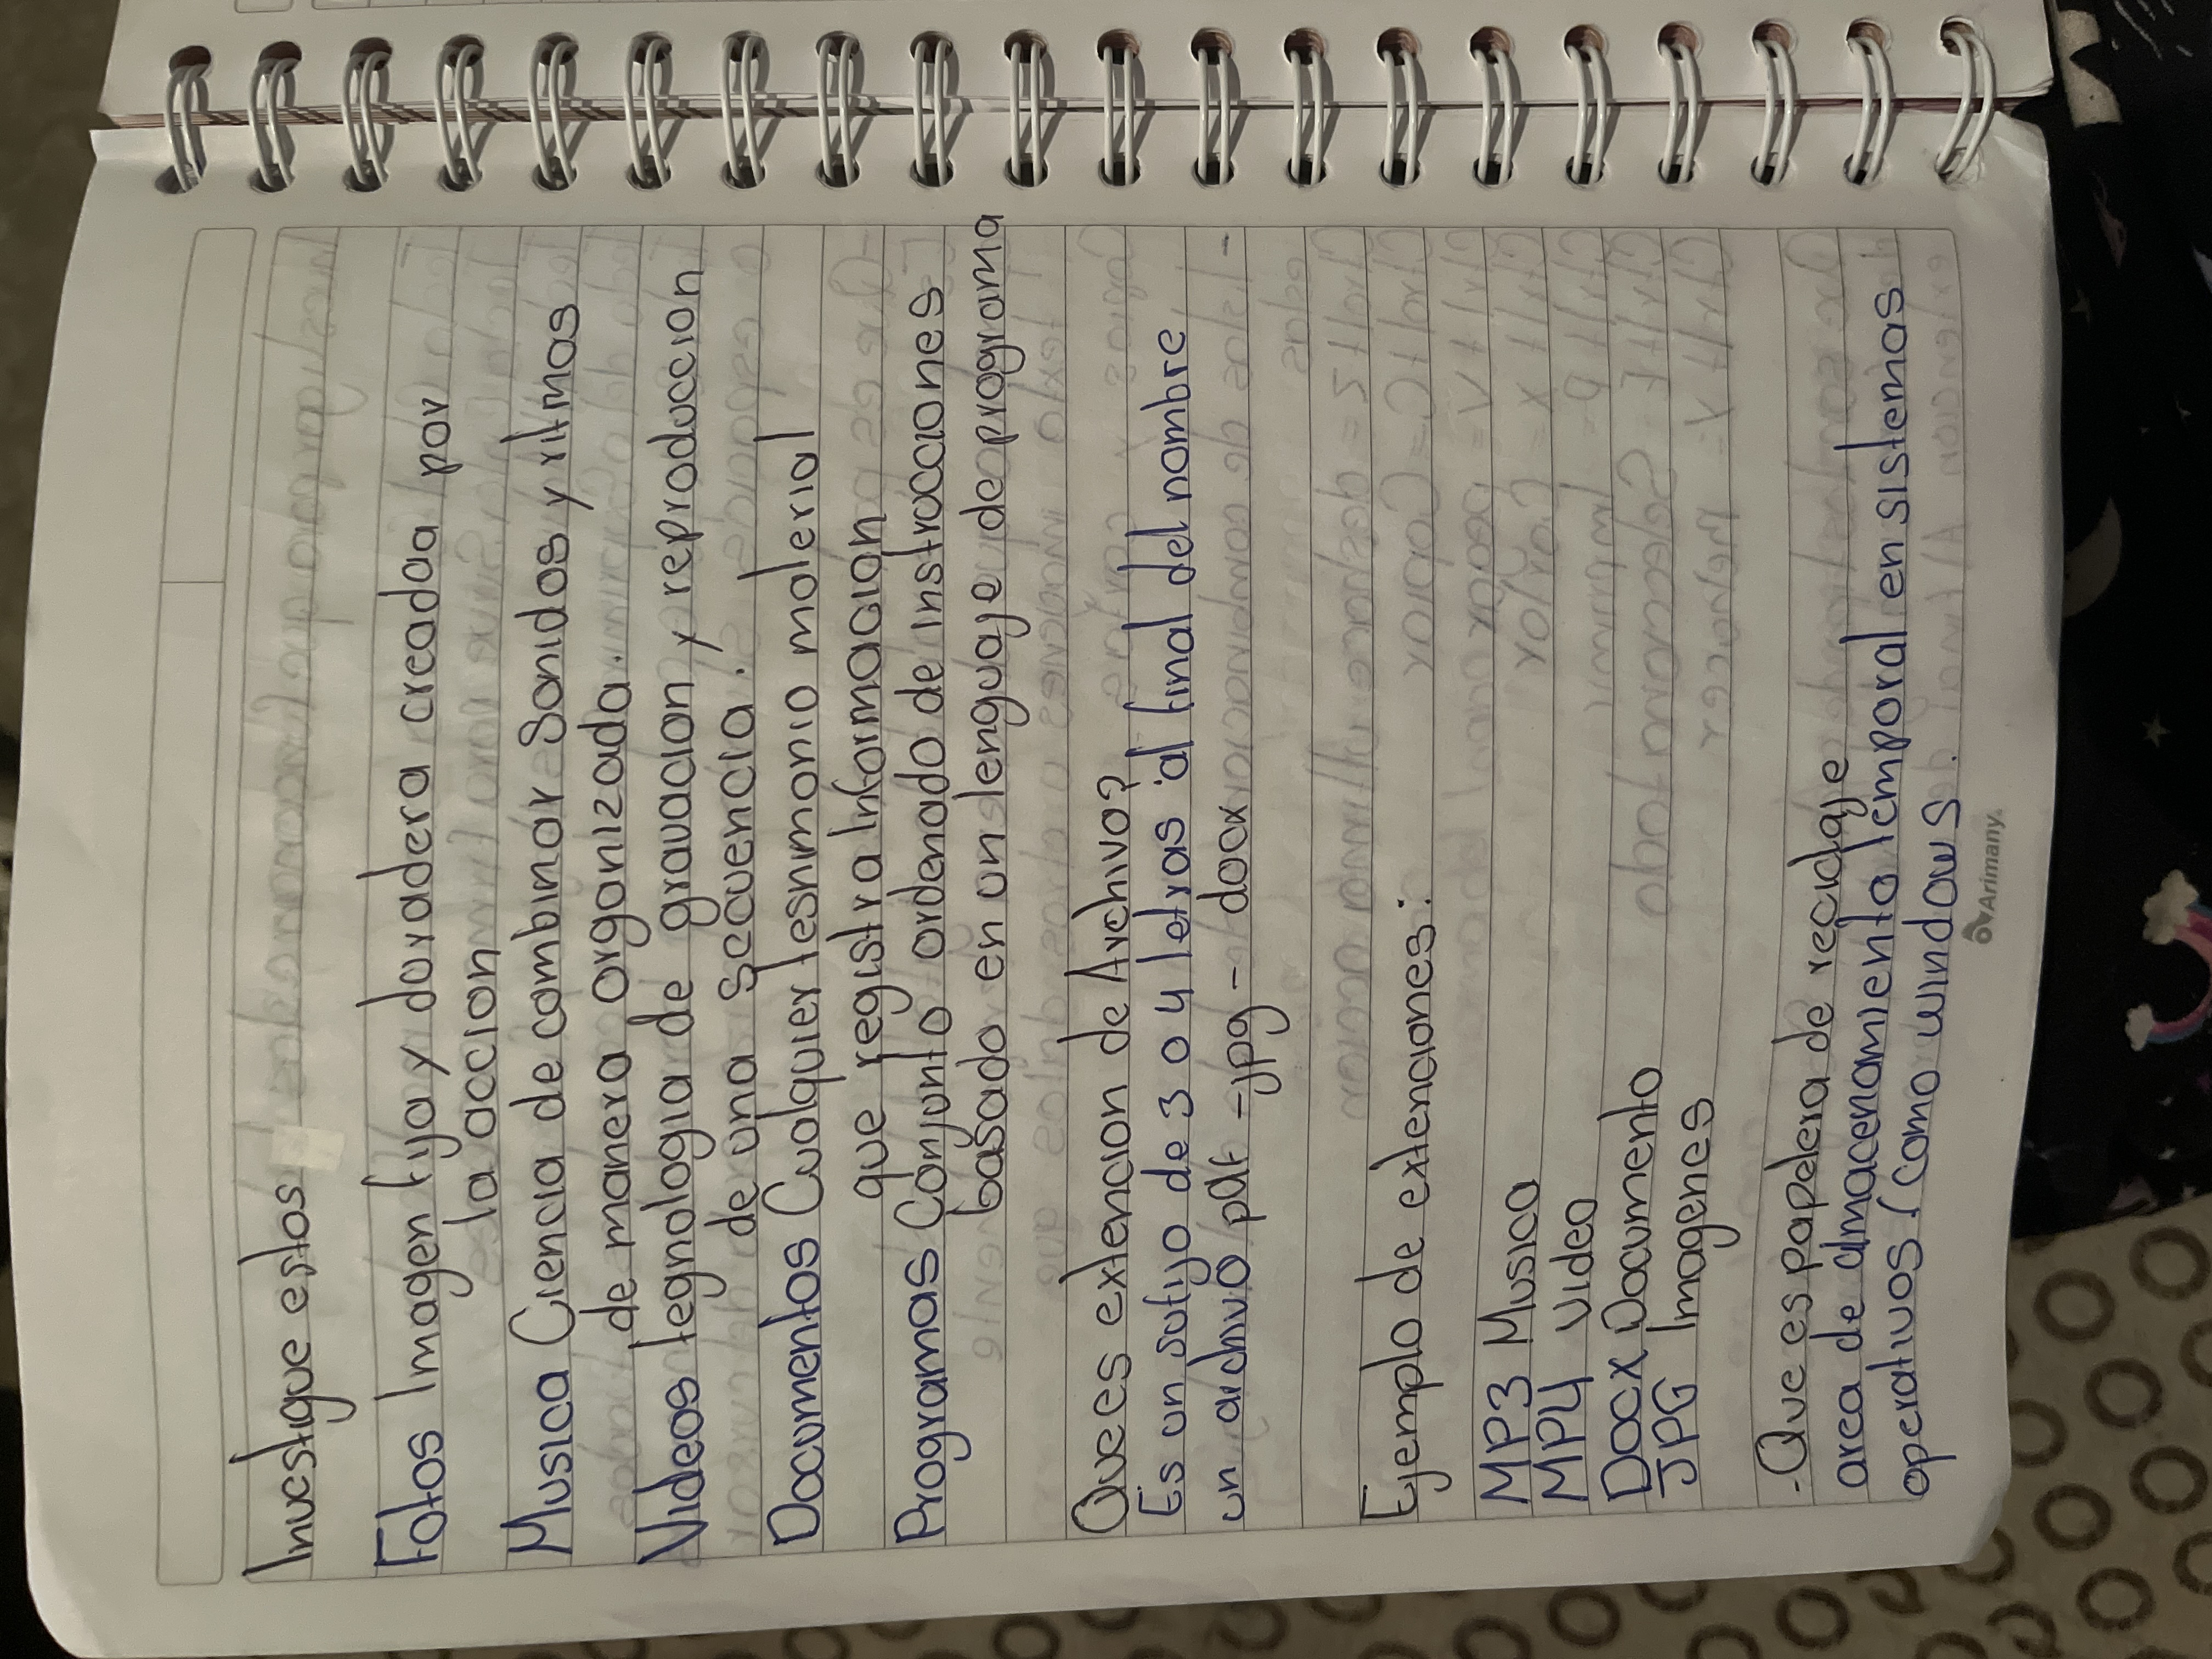 Investigue estos
Fotos Imagen fija y duradera creada por
la accion
Musica Ciencia de combinar sonidos y ritmos
de manera organizada.
Videos tegnologia de gravacion y reproduccion
de una secuencia.
Documentos Cualquier tesnimonio material
que registra informacion
Programas Conjunto ordenado de instrucciones
basado en un lenguaje de programa
Que es extencion de Archivo?
Es un sufijo de 3 o 4 letras al final del nombre
un archivo pdf - jpg - docx
Ejemplo de extenciones:
MP3 Musica
MP4 Video
Docx Documento
JPG Imagenes
-Que es papelera de reciclaje
area de almacenamiento temporal en sistemas
operativos (como windows.
Arimany.